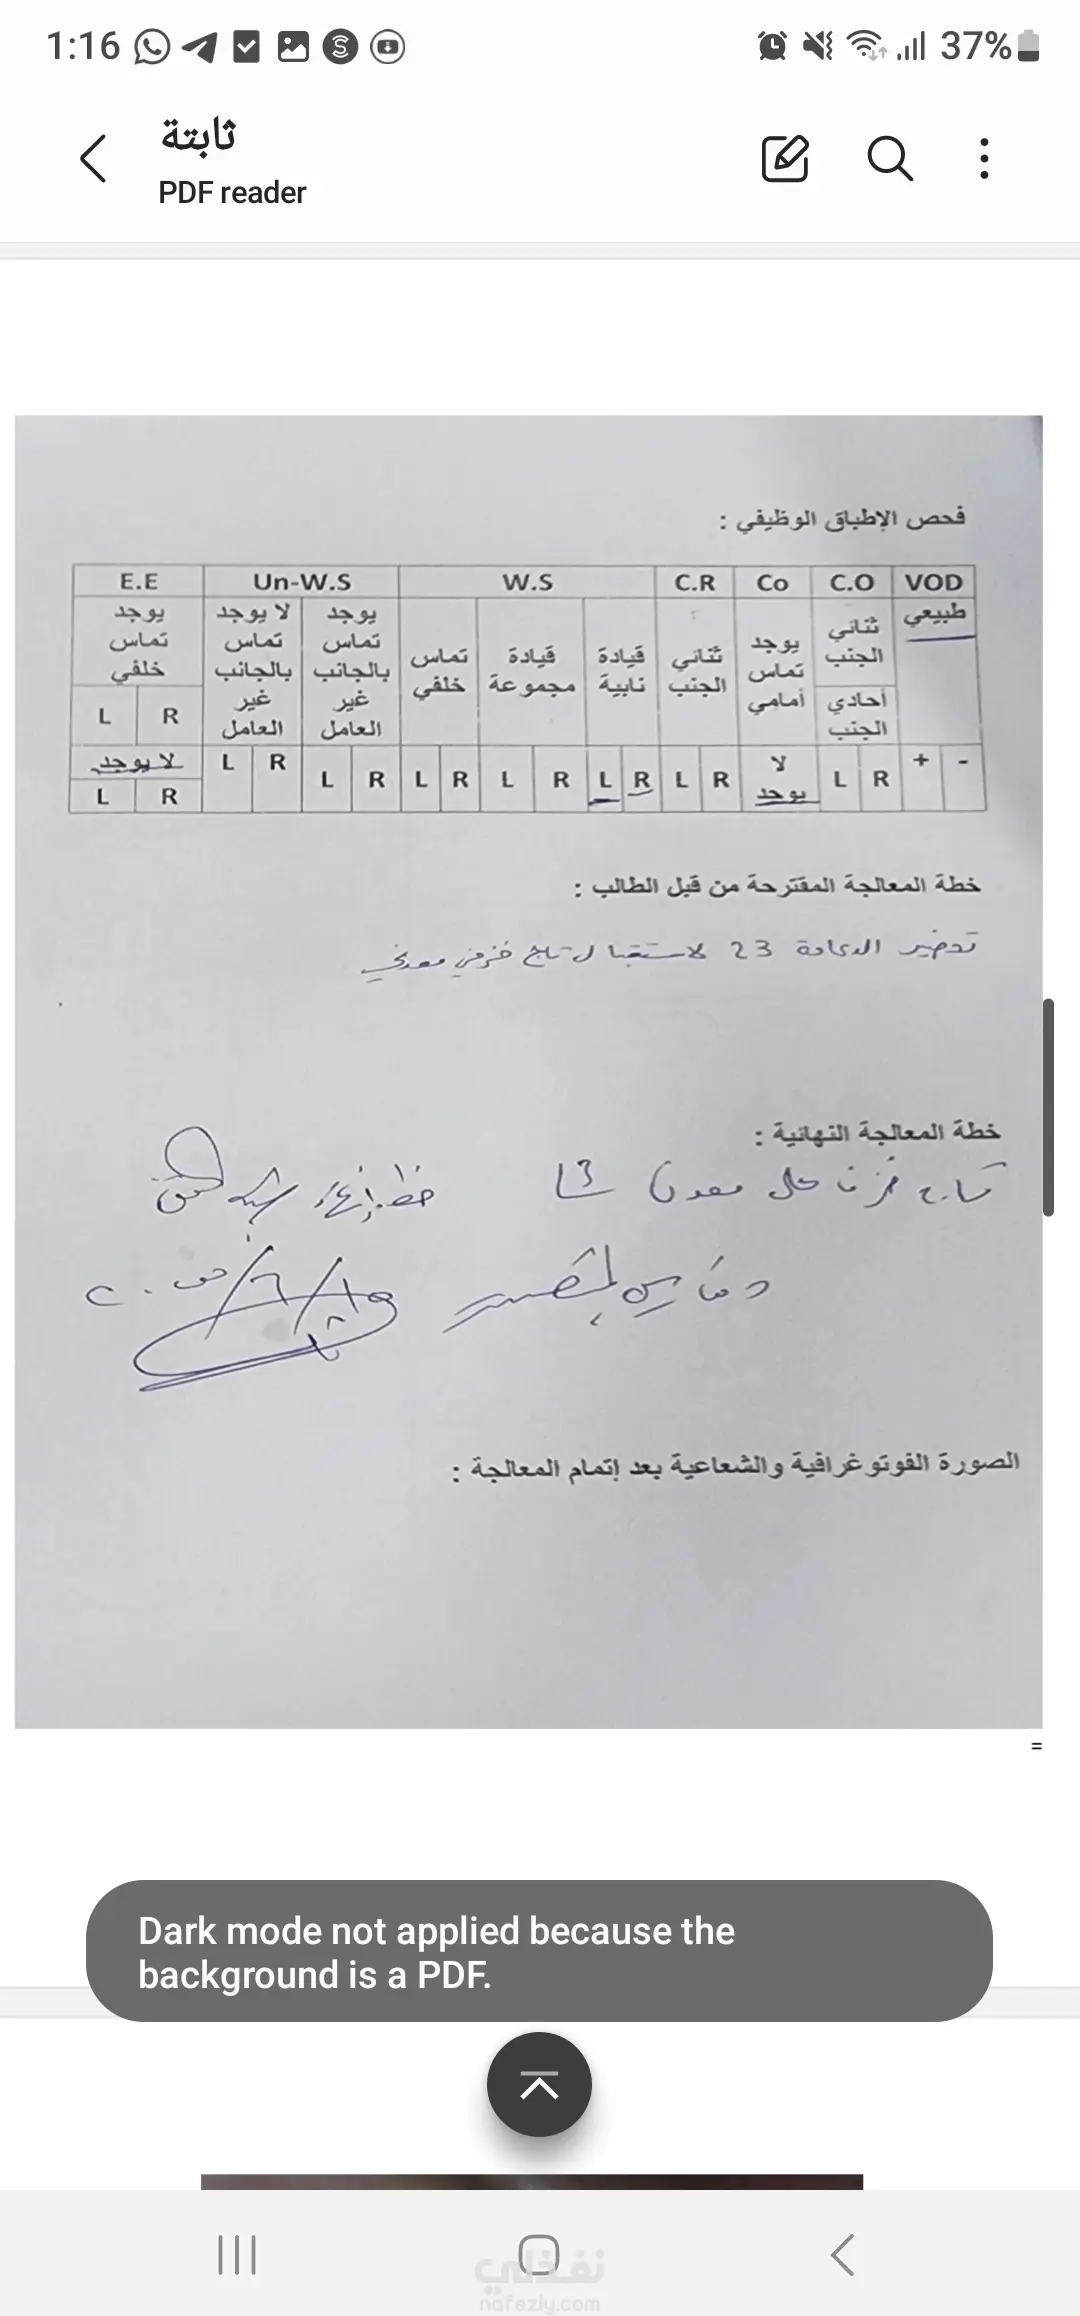 1:16
37%
ثابتة
PDF reader
فحص الإطباق الوظيفي :
VOD C.O Co C.R W.S Un-W.S E.E
طبيعي
ثنائي الجنب
أحادي الجنب
يوجد تماس أمامي
ثنائي الجنب
قيادة نابية
قيادة مجموعة
تماس خلفي
يوجد تماس بالجانب غير العامل
لا يوجد تماس بالجانب غير العامل
يوجد تماس خلفي
R L
- + R L لا يوجد R L R L R L R L R L R L لا يوجد
R L
خطة المعالجة المقترحة من قبل الطالب :
تحضير الدعامة 23 لاستقبال تاج خزفي معدني
خطة المعالجة النهائية :
تاج خزف على معدن
الصورة الفوتوغرافية والشعاعية بعد إتمام المعالجة :
=
Dark mode not applied because the
background is a PDF.
نفذلي
nafezly.com